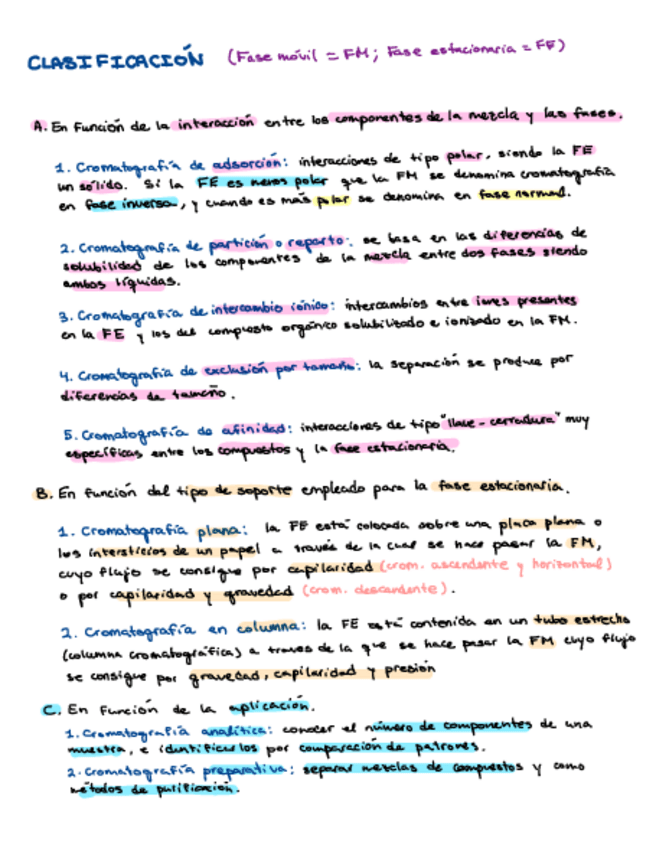 CLASIFICACIÓN (Fase móvil = FM; Fase estacionaria = FE)
A. En función de la interacción entre los componentes de la mezcla y las fases.
1. Cromatografía de adsorción: interacciones de tipo polar, siendo la FE
un sólido. Si la FE es menos polar que la FM se denomina cromatografía
en fase inversa, y cuando es más polar se denomina en fase normal.
2. Cromatografía de partición o reparto: se basa en las diferencias de
solubilidad de los componentes de la mezcla entre dos fases siendo
ambos líquidas.
3. Cromatografía de intercambio iónico: intercambios entre iones presentes
en la FE y los del compuesto orgánico solubilizado e ionizado en la FM.
4. Cromatografía de exclusión por tamaño: la separación se produce por
diferencias de tamaño.
5. Cromatografía de afinidad: interacciones de tipo "llave - cerradura" muy
específicas entre los compuestos y la fase estacionaria.
B. En función del tipo de soporte empleado para la fase estacionaria.
1. Cromatografía plana: la FE está colocada sobre una placa plana o
los intersticios de un papel a través de la cual se hace pasar la FM,
cuyo flujo se consigue por capilaridad (crom. ascendente y horizontal)
o por capilaridad y gravedad (crom. descendente).
2. Cromatografía en columna: la FE está contenida en un tubo estrecho
(columna cromatográfica) a traves de la que se hace pasar la FM cuyo flujo
se consigue por gravedad, capilaridad y presión
C. En función de la aplicación.
1. Cromatografía analítica: conocer el número de componentes de una
muestra, e identificarlos por comparación de patrones.
2. Cromatografía preparativa: separar mezclas de compuestos y como
métodos de purificación.